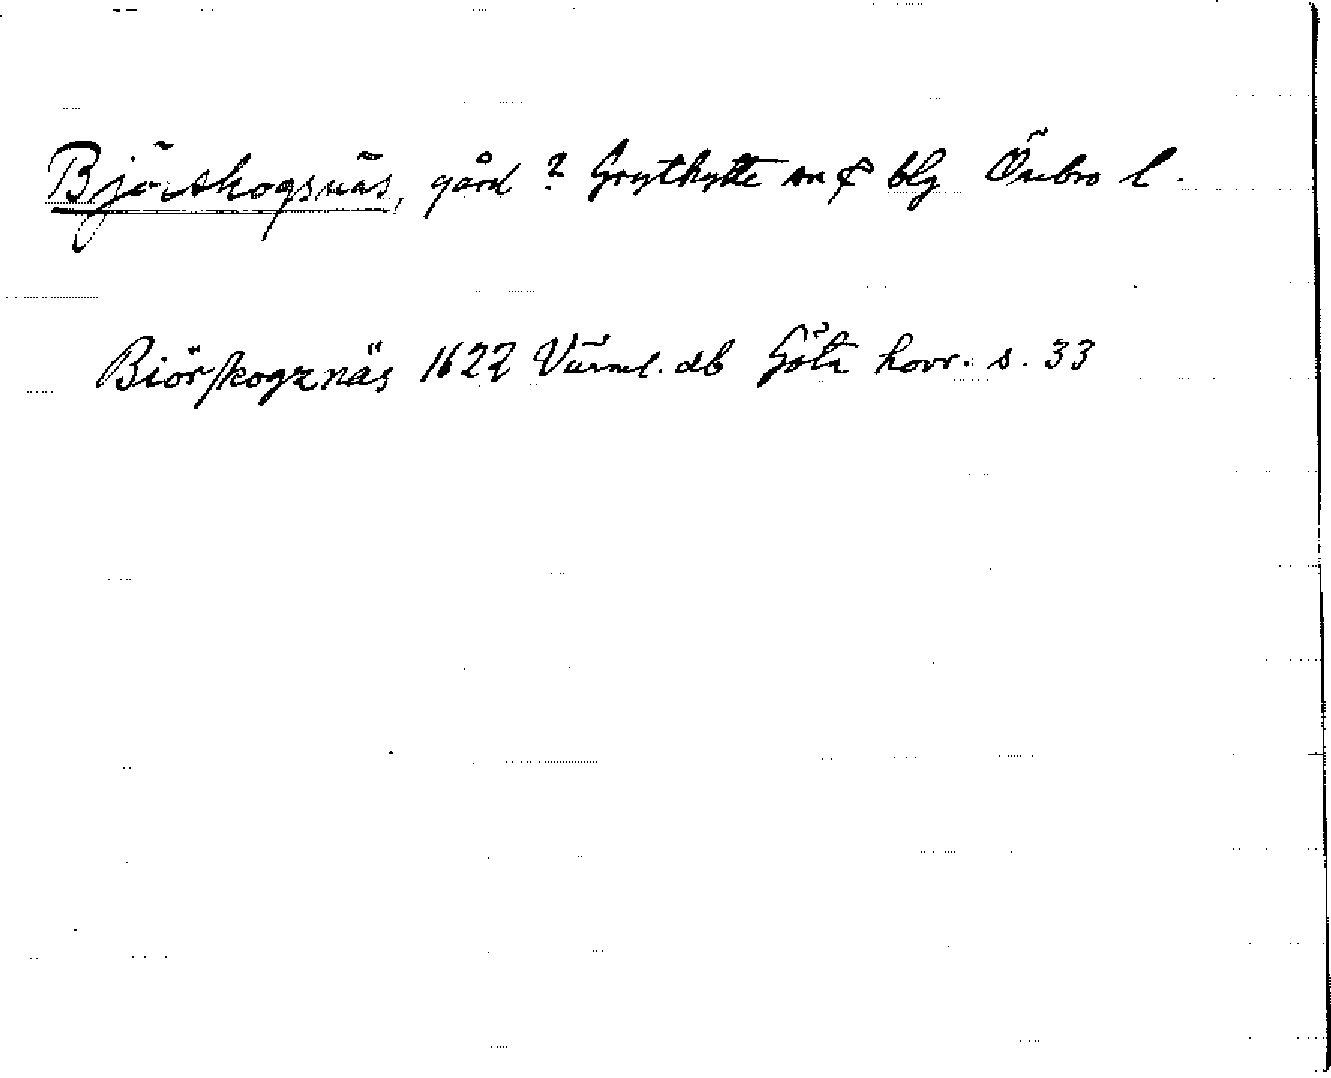 Björskogsnäs, gård ? Grythytte sn & blg Örebro l.
Biörskogznäs 1622 Värml. db Göta hovr. s. 33